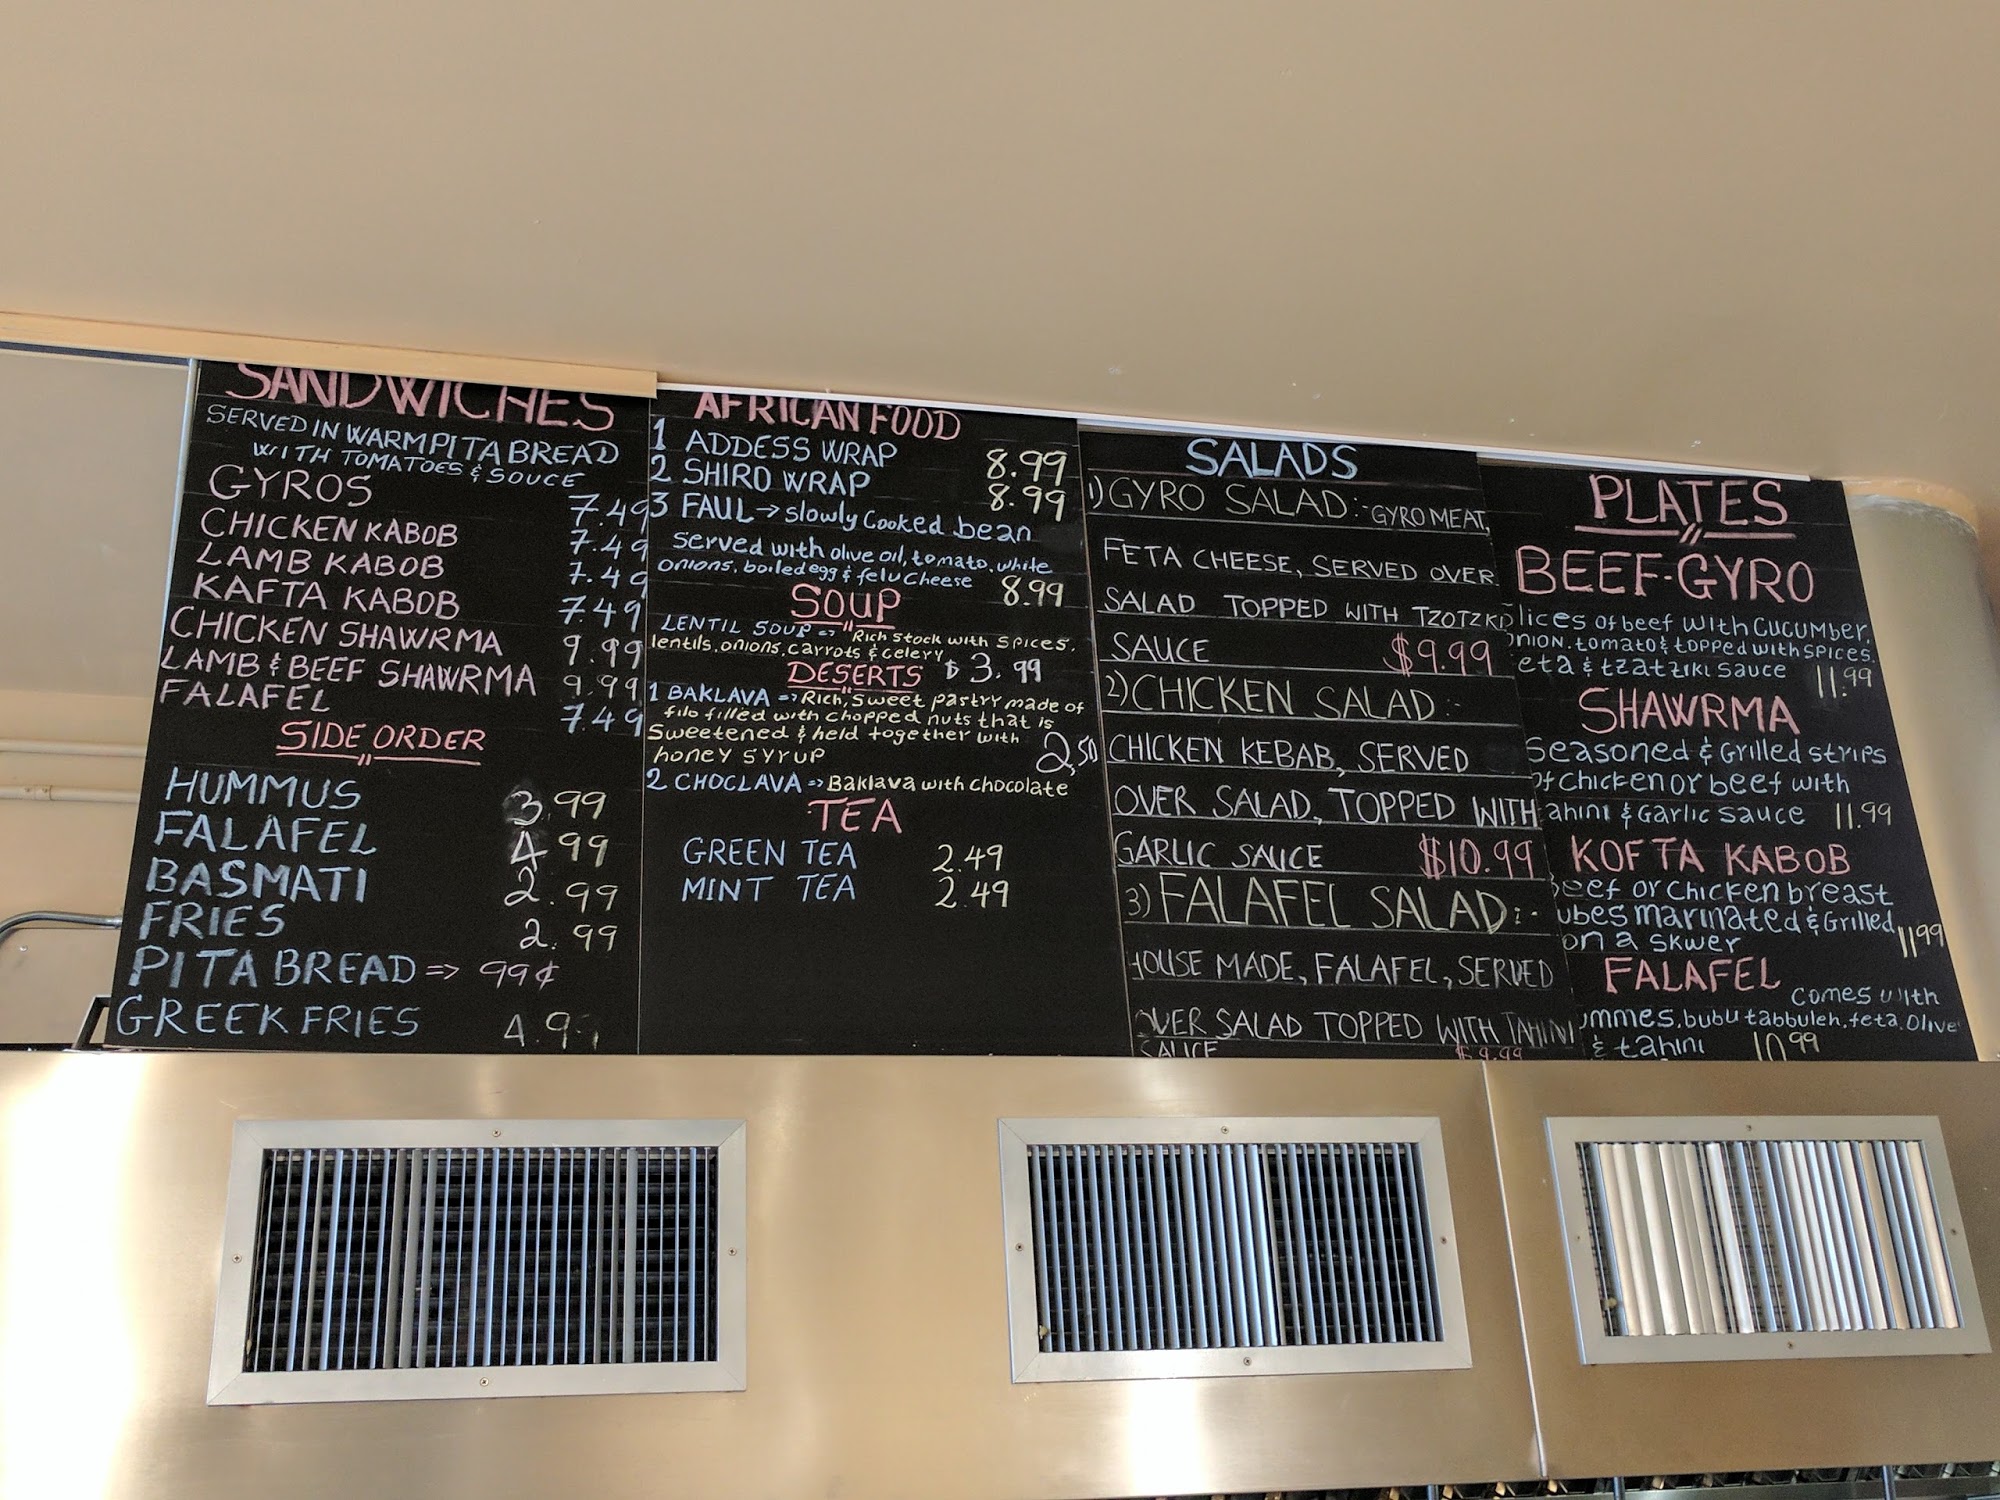 SANDWICHES
SERVED IN WARM PITA BREAD
WITH TOMATOES & SOUCE
GYROS 7.49
CHICKEN KABOB 7.49
LAMB KABOB 7.49
KAFTA KABOB 7.49
CHICKEN SHAWRMA 9.99
LAMB & BEEF SHAWRMA 9.99
FALAFEL 7.49
SIDE ORDER
HUMMUS 3.99
FALAFEL 4.99
BASMATI 2.99
FRIES 2.99
PITA BREAD => 99¢
GREEK FRIES 4.99
AFRICAN FOOD
1 ADDESS WRAP 8.99
2 SHIRO WRAP 8.99
3 FAUL → slowly cooked bean
served with olive oil, tomato, white
onions, boiled egg & felu cheese 8.99
SOUP
LENTIL SOUP => Rich stock with spices,
lentils, onions, carrots & celery $3.99
DESERTS
1 BAKLAVA => Rich, sweet pastry made of
filo filled with chopped nuts that is
sweetened & held together with
honey syrup 2,50
2 CHOCLAVA => Baklava with chocolate
TEA
GREEN TEA 2.49
MINT TEA 2.49
SALADS
1) GYRO SALAD:- GYRO MEAT,
FETA CHEESE, SERVED OVER
SALAD TOPPED WITH TZOTZKI
SAUCE $9.99
2) CHICKEN SALAD:-
CHICKEN KEBAB, SERVED
OVER SALAD, TOPPED WITH
GARLIC SAUCE $10.99
3) FALAFEL SALAD:-
HOUSE MADE, FALAFEL, SERVED
OVER SALAD TOPPED WITH TAHINI
SAUCE $9.99
PLATES
BEEF-GYRO
slices of beef with cucumber,
onion, tomato & topped with spices,
eta & tzatziki sauce 11.99
SHAWRMA
Seasoned & Grilled strips
of chicken or beef with
ahini & Garlic sauce 11.99
KOFTA KABOB
Beef or chicken breast
ubes marinated & Grilled
on a skwer 11.99
FALAFEL comes with
ummes, bubu tabbuleh, feta, olive
& tahini 10.99